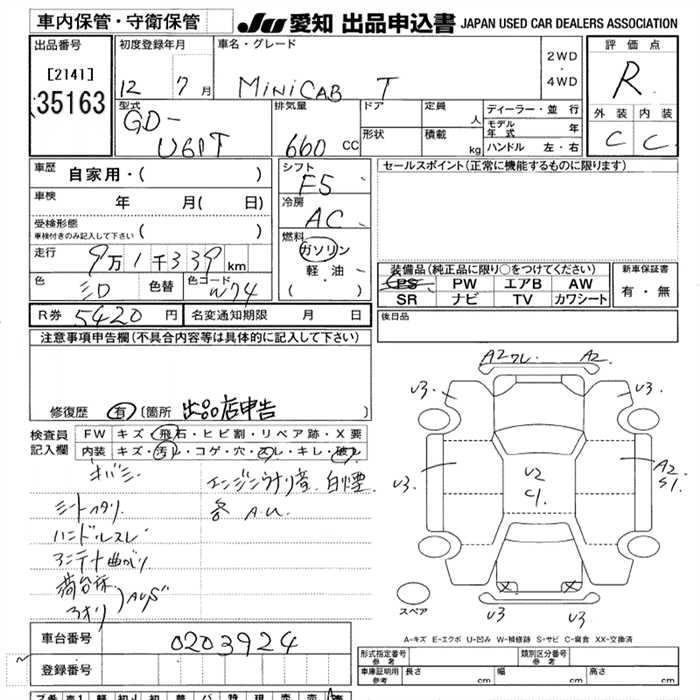 車内保管・守衛保管
JU 愛知 出品申込書 JAPAN USED CAR DEALERS ASSOCIATION
出品番号
[2141]
35163
初度登録年月
12 7 月
車名・グレード
MINICAB T
2WD
・
4WD
評価点
R
外装 内装
C C
型式
GD-
U61T
排気量
660 CC
ドア
形状
定員
人
積載
kg
ディーラー・並 行
モデル年式 年
ハンドル 左・右
車歴
自家用・( )
車検
年 月( 日)
受検形態
車検付きのみ記入して下さい ( )
走行
9万1千339 km
色
シロ
色替
色コード
W74
シフト
F5
冷房
AC
燃料
ガソリン
軽 油・
( )
セールスポイント(正常に機能するものに限ります)
装備品(純正品に限り○をつけてください)
PS PW エアB AW
SR ナビ TV カワシート
新車保証書
有・無
R券 5420 円
名変通知期限 月 日
後日品
注意事項申告欄(不具合内容等は具体的に記入して下さい)
修復歴 有 [箇所 出品店申告 ]
検査員
記入欄
FW キズ・飛石・ヒビ割・リペア跡・X要
内装 キズ・汚レ・コゲ・穴・スレ・キレ・破レ
キバミ
シートヘタリ
ハンドルスレ
アンテナ曲がり
荷台床
アオリ
AUS
エンジンウナリ音、白煙
各 A.U.
A2ワレ A2
U3 U3
U3
U2
C1
A2
S1
U3 U3
X X
スペア
A-キズ E-エクボ U-凹み W-補修跡 S-サビ C-腐食 XX-交換済
車台番号 0203924
登録番号
形式指定番号
参考
類別区分番号
参考
車庫証明用
参考
長さ cm
幅 cm
高さ cm